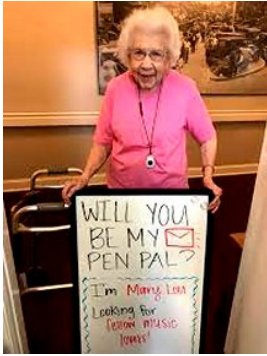 WILL YOU
BE MY
PEN PAL?
I'm Mary Lou
Looking for
fellow music
lovers!